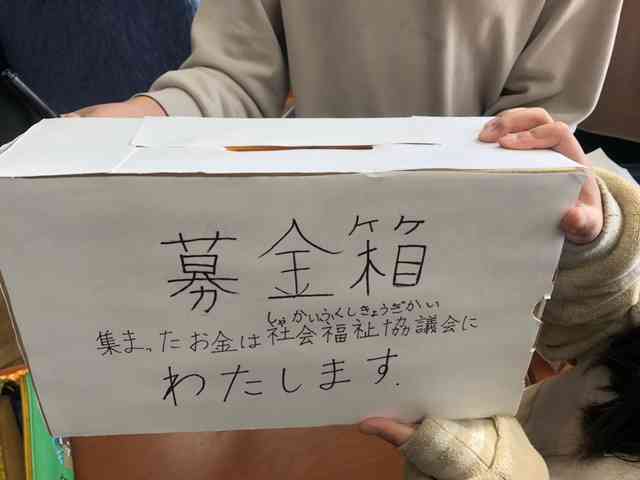 募金箱
しゃかいふくしきょうぎかい
集まったお金は社会福祉協議会に
わたします.